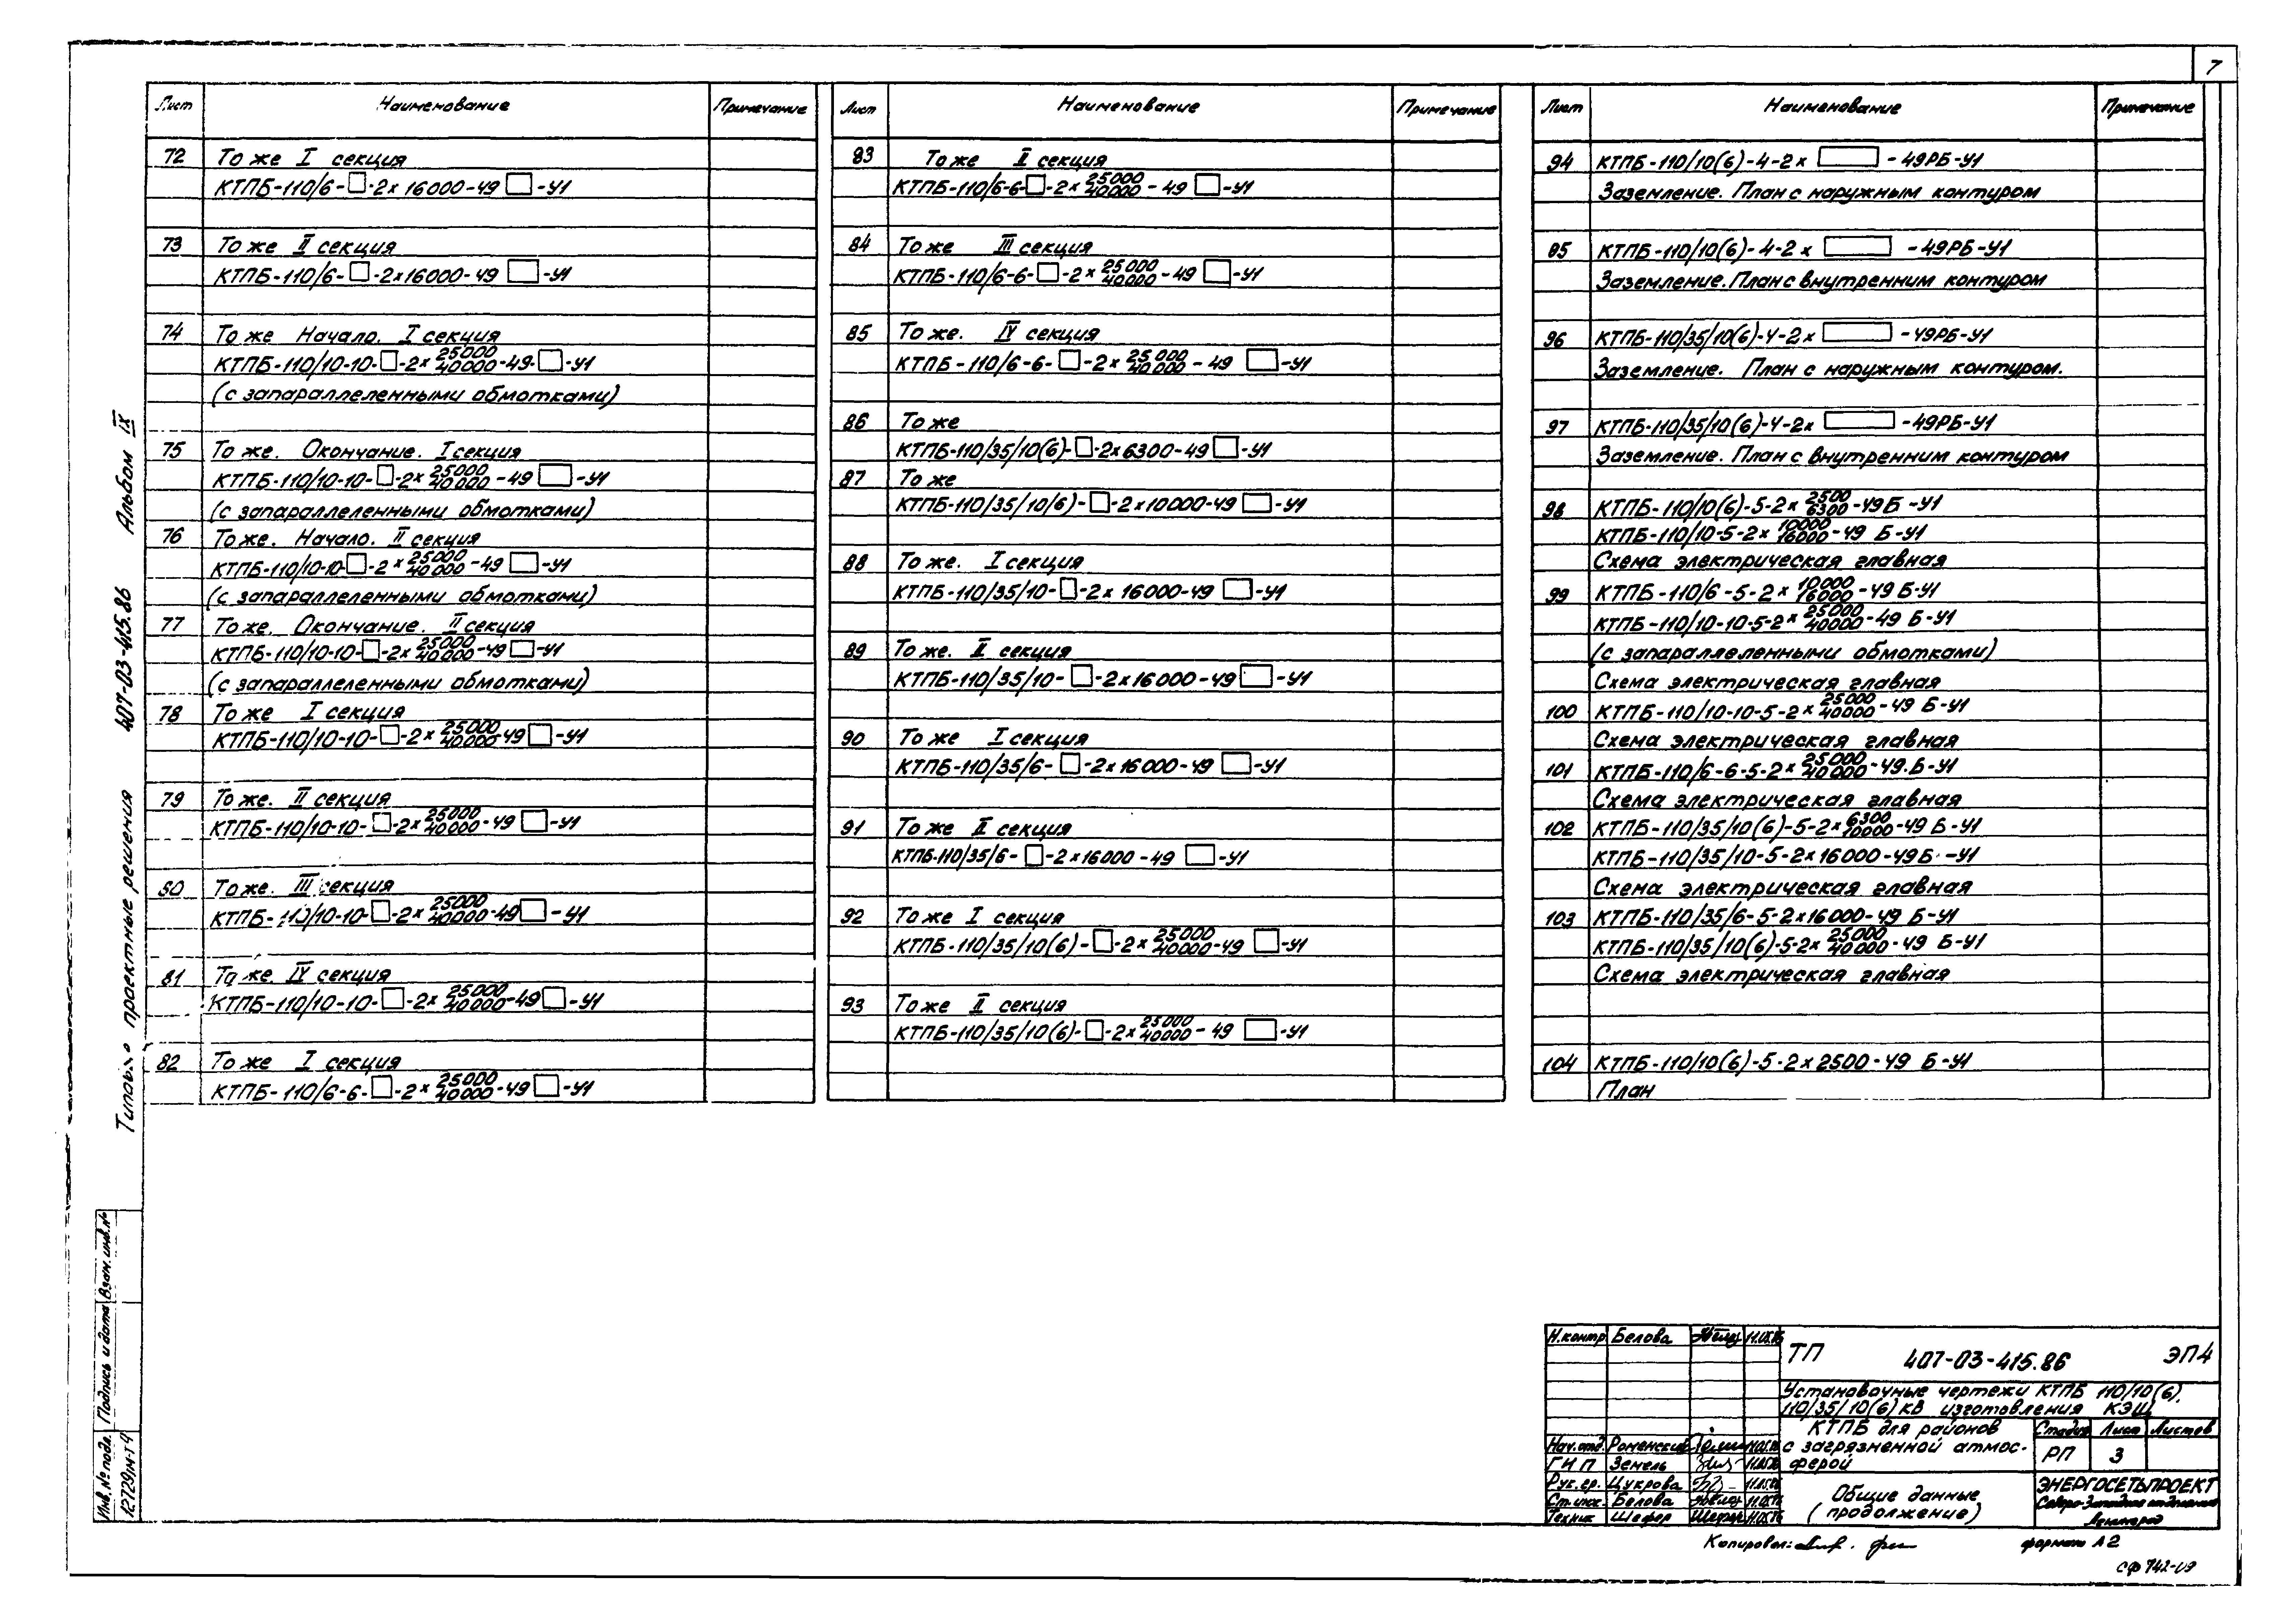 7
Лист Наименование Примечание
72 То же I секция
КТПБ-110/6-□-2х16000-49 □-У1
73 То же II секция
КТПБ-110/6-□-2х16000-49 □-У1
74 То же Начало. I секция
КТПБ-110/10-10-□-2х 25000/40000-49-□-У1
(с запараллеленными обмотками)
75 То же. Окончание. I секция
КТПБ-110/10-10-□-2х 25000/40000-49 □-У1
(с запараллеленными обмотками)
76 То же. Начало. II секция
КТПБ-110/10-10-□-2х 25000/40000-49 □-У1
(с запараллеленными обмотками)
77 То же. Окончание. II секция
КТПБ-110/10-10-□-2х 25000/40000-49 □-У1
(с запараллеленными обмотками)
78 То же I секция
КТПБ-110/10-10-□-2х 25000/40000-49 □-У1
79 То же. II секция
КТПБ-110/10-10-□-2х 25000/40000-49 □-У1
80 То же. III секция
КТПБ-110/10-10-□-2х 25000/40000-49 □-У1
81 То же. IV секция
КТПБ-110/10-10-□-2х 25000/40000-49 □-У1
82 То же I секция
КТПБ-110/6-6-□-2х 25000/40000-49 □-У1
Лист Наименование Примечание
83 То же II секция
КТПБ-110/6-6-□-2х 25000/40000-49 □-У1
84 То же III секция
КТПБ-110/6-6-□-2х 25000/40000-49 □-У1
85 То же. IV секция
КТПБ-110/6-6-□-2х 25000/40000-49 □-У1
86 То же
КТПБ-110/35/10(6)-□-2х6300-49 □-У1
87 То же
КТПБ-110/35/10/6)-□-2х10000-49 □-У1
88 То же. I секция
КТПБ-110/35/10-□-2х16000-49 □-У1
89 То же. II секция
КТПБ-110/35/10-□-2х16000-49 □-У1
90 То же I секция
КТПБ-110/35/6-□-2х16000-49 □-У1
91 То же II секция
КТПБ-110/35/6-□-2х16000-49 □-У1
92 То же I секция
КТПБ-110/35/10(6)-□-2х 25000/40000-49 □-У1
93 То же II секция
КТПБ-110/35/10(6)-□-2х 25000/40000-49 □-У1
Лист Наименование Примечание
94 КТПБ-110/10(6)-4-2х □ -49РБ-У1
Заземление. План с наружным контуром
85 КТПБ-110/10(6)-4-2х □ -49РБ-У1
Заземление. План с внутренним контуром
96 КТПБ-110/35/10(6)-4-2х □ -49РБ-У1
Заземление. План с наружным контуром.
97 КТПБ-110/35/10(6)-4-2х □ -49РБ-У1
Заземление. План с внутренним контуром
98 КТПБ-110/10(6)-5-2х 2500/6300-49Б-У1
КТПБ-110/10-5-2х 10000/16000-49 Б-У1
Схема электрическая главная
99 КТПБ-110/6-5-2х 10000/16000-49 Б-У1
КТПБ-110/10-10-5-2х 25000/40000-49 Б-У1
(с запараллеленными обмотками)
Схема электрическая главная
100 КТПБ-110/10-10-5-2х 25000/40000-49 Б-У1
Схема электрическая главная
101 КТПБ-110/6-6-5-2х 25000/40000-49.Б-У1
Схема электрическая главная
102 КТПБ-110/35/10(6)-5-2х 6300/10000-49 Б-У1
КТПБ-110/35/10-5-2х16000-49Б-У1
Схема электрическая главная
103 КТПБ-110/35/6-5-2х16000-49 Б-У1
КТПБ-110/35/10(6)-5-2х 25000/40000-49 Б-У1
Схема электрическая главная
104 КТПБ-110/10(6)-5-2х2500-49 Б-У1
План
проектные решения 407-03-415.86 Альбом IX
Инв. № подл. Подпись и дата Взам. инв. №
12729тм-т4
Н.контр Белова
Нач.отд. Роменский
ГИП Земель
Рук.гр. Цукрова
Ст.инж. Белова
Техник Шефер
ТП 407-03-415.86 ЭП4
Установочные чертежи КТПБ 110/10(6),
110/35/10(6) кВ изготовления КЭЩ
КТПБ для районов
с загрязненной атмос-
ферой
Стадия Лист Листов
РП 3
Общие данные
(продолжение)
ЭНЕРГОСЕТЬПРОЕКТ
Северо-Западное отделение
Ленинград
Копировал: формат А2
сф 742-09